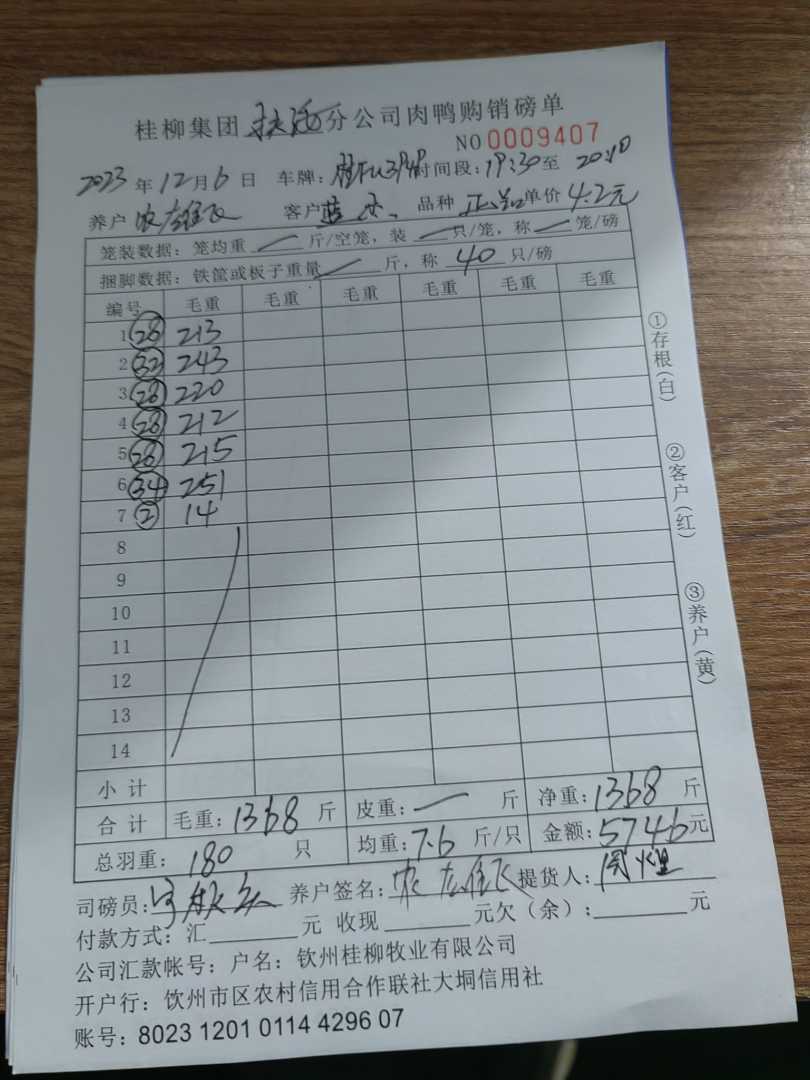 桂柳集团 分公司肉鸭购销磅单
NO 0009407
2023年12月6日 车牌: 时间段:19:30至 20:10
养户 农雄飞 客户 蓝 品种 单价 4.2元
笼装数据:笼均重 — 斤/空笼,装 — 只/笼,称 — 笼/磅
捆脚数据:铁筐或板子重量 — 斤,称 40 只/磅
编号 毛重 毛重 毛重 毛重 毛重 毛重
1 28 213
2 32 243
3 28 220
4 28 212
5 28 215
6 34 251
7 2 14
8
9
10
11
12
13
14
小计
合计 毛重:1368 斤 皮重:— 斤 净重:1368 斤
总羽重:180 只 均重:7.6 斤/只 金额:5746元
司磅员: 养户签名:农雄飞 提货人:
付款方式:汇 元 收现 元欠(余): 元
公司汇款帐号:户名:钦州桂柳牧业有限公司
开户行:钦州市区农村信用合作联社大垌信用社
账号:8023 1201 0114 4296 07
①存根(白)
②客户(红)
③养户(黄)